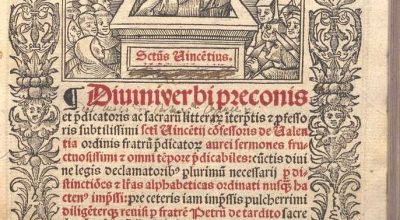 Sctus Uincētius.
¶ Diuini verbi preconis
et p̄dicatoris ac sacrarū litterarꝝ īterp̄tis ⁊ ꝓfesso
ris subtilissimi scti Uincētij cōfessoris de Ualen
tia ordinis fratrū p̄dicatoꝝ aurei sermones fru
ctuosissimi ⁊ omni tēpore p̄dicabiles: cūctis diui
ne legis declamatoribꝰ plurimū necessarij: ꝑ di
stinctiōes ⁊ lr̄as alphabeticas ordinati nusꝙ̄ ha
ctenꝰ imp̄ssi: p̄ter ceteris iam imp̄ssis pulcherrimi
diligēterqꝫ reuisi ꝑ fratrē Petrū de tardito sacre